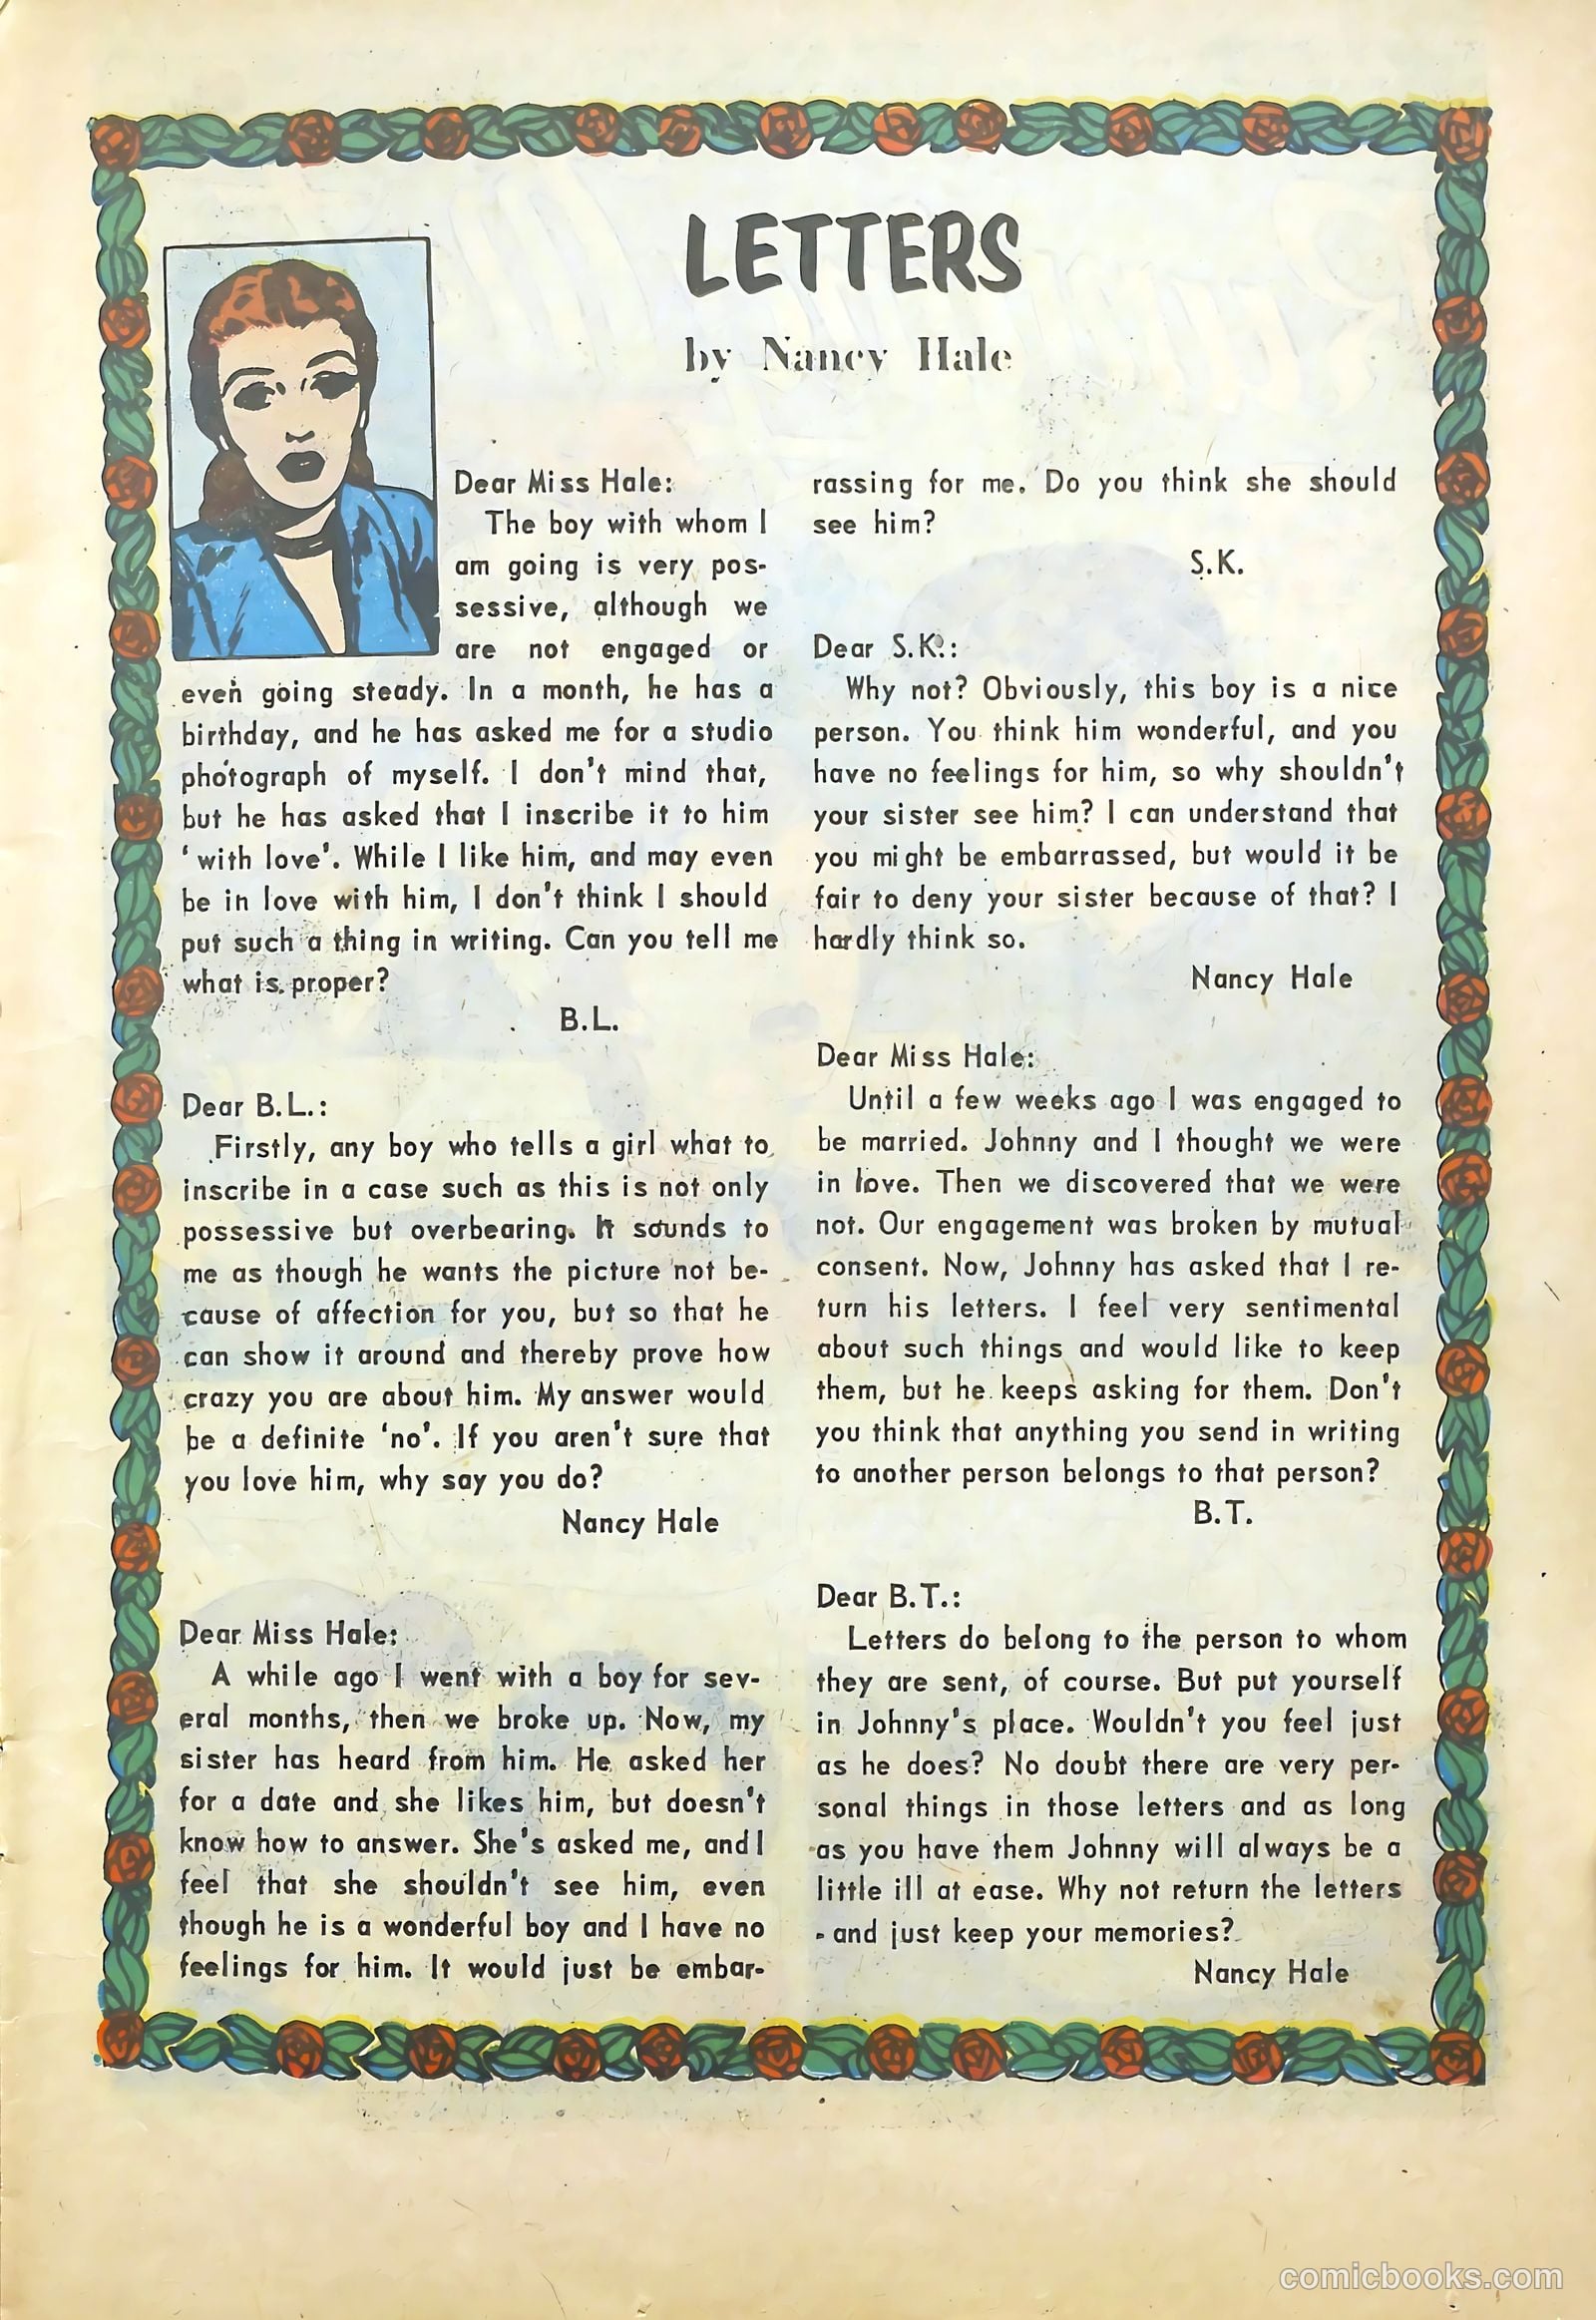 LETTERS
by Nancy Hale
Dear Miss Hale:
The boy with whom I
am going is very pos-
sessive, although we
are not engaged or
even going steady. In a month, he has a
birthday, and he has asked me for a studio
photograph of myself. I don't mind that,
but he has asked that I inscribe it to him
'with love'. While I like him, and may even
be in love with him, I don't think I should
put such a thing in writing. Can you tell me
what is proper?
B.L.
Dear B.L.:
Firstly, any boy who tells a girl what to
inscribe in a case such as this is not only
possessive but overbearing. It sounds to
me as though he wants the picture not be-
cause of affection for you, but so that he
can show it around and thereby prove how
crazy you are about him. My answer would
be a definite 'no'. If you aren't sure that
you love him, why say you do?
Nancy Hale
Dear Miss Hale:
A while ago I went with a boy for sev-
eral months, then we broke up. Now, my
sister has heard from him. He asked her
for a date and she likes him, but doesn't
know how to answer. She's asked me, and I
feel that she shouldn't see him, even
though he is a wonderful boy and I have no
feelings for him. It would just be embar-
rassing for me. Do you think she should
see him?
S.K.
Dear S.K.:
Why not? Obviously, this boy is a nice
person. You think him wonderful, and you
have no feelings for him, so why shouldn't
your sister see him? I can understand that
you might be embarrassed, but would it be
fair to deny your sister because of that? I
hardly think so.
Nancy Hale
Dear Miss Hale:
Until a few weeks ago I was engaged to
be married. Johnny and I thought we were
in love. Then we discovered that we were
not. Our engagement was broken by mutual
consent. Now, Johnny has asked that I re-
turn his letters. I feel very sentimental
about such things and would like to keep
them, but he keeps asking for them. Don't
you think that anything you send in writing
to another person belongs to that person?
B.T.
Dear B.T.:
Letters do belong to the person to whom
they are sent, of course. But put yourself
in Johnny's place. Wouldn't you feel just
as he does? No doubt there are very per-
sonal things in those letters and as long
as you have them Johnny will always be a
little ill at ease. Why not return the letters
- and just keep your memories?
Nancy Hale
comicbooks.com